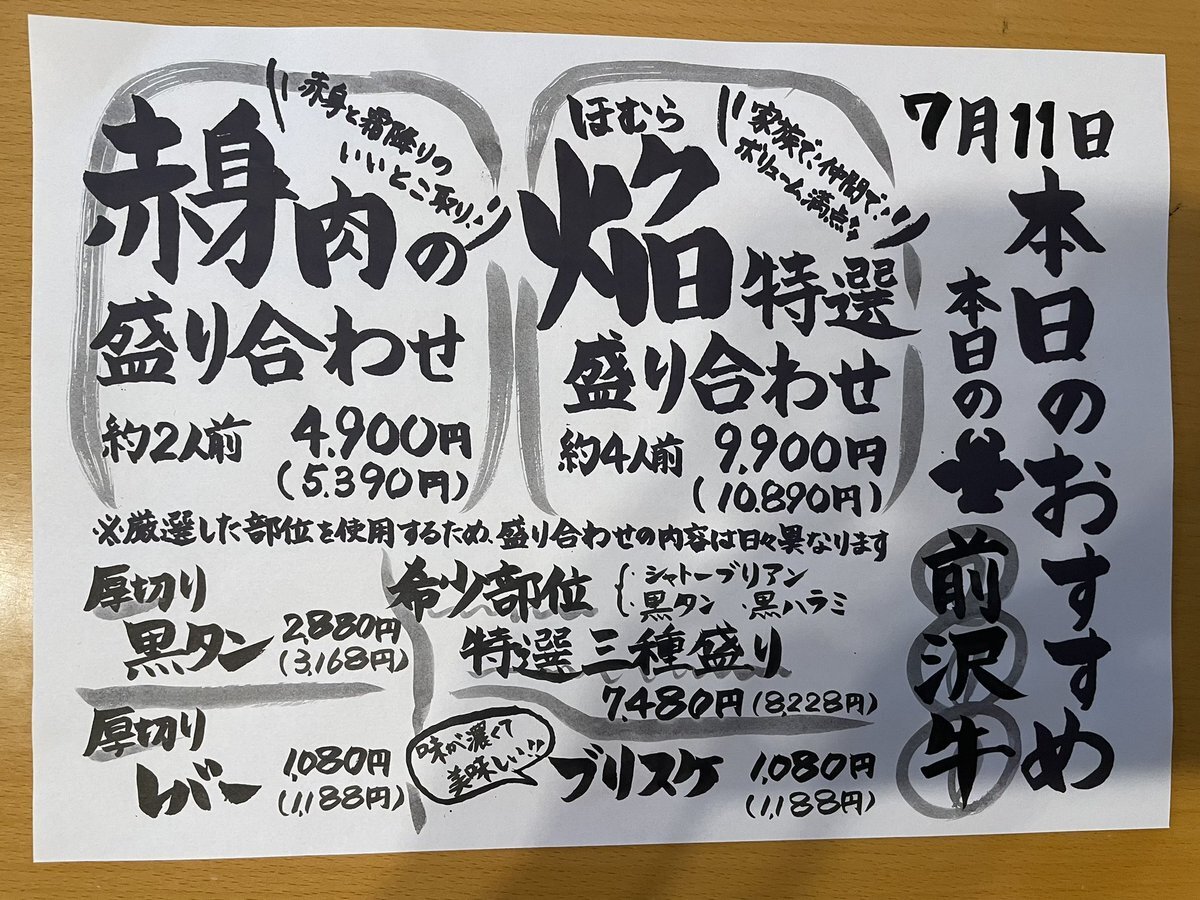 7月11日
本日のおすすめ
本日の
前沢牛
ほむら
家族で・仲間で・
ボリューム満点!!
焔特選
盛り合わせ
約4人前 9,900円
(10,890円)
赤身と霜降りの
いいとこ取り!
赤身肉の
盛り合わせ
約2人前 4,900円
(5,390円)
※厳選した部位を使用するため、盛り合わせの内容は日々異なります
希少部位
・シャトーブリアン
・黒タン ・黒ハラミ
特選三種盛り
7,480円(8,228円)
厚切り
黒タン
2,880円
(3,168円)
味が濃くて
美味しい!!
ブリスケ
1,080円
(1,188円)
厚切り
レバー
1,080円
(1,188円)